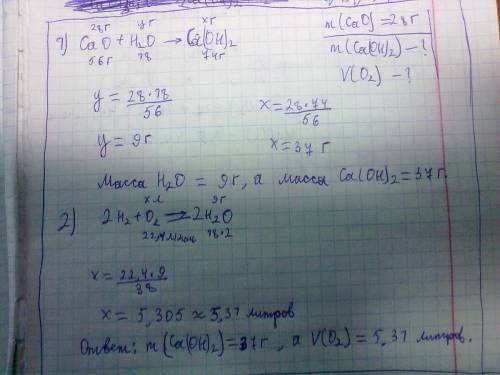 28г уг хг
m(CaO)=28г
1) CaO + H₂O → Ca(OH)₂
56г 18 74г
m(Ca(OH)₂) - ?
V(O₂) - ?
y = 28·18/56
x = 28·74/56
y = 9г
x = 37 г
Масса H₂O = 9г, а масса Ca(OH)₂ = 37г.
х л 9г
2) 2H₂ + O₂ → 2H₂O
22,4 л/моль 18·2
x = 22,4·9/38
x = 5,305 ≈ 5,31 литров
Ответ: m(Ca(OH)₂) = 37г, а V(O₂) = 5,31 литров.